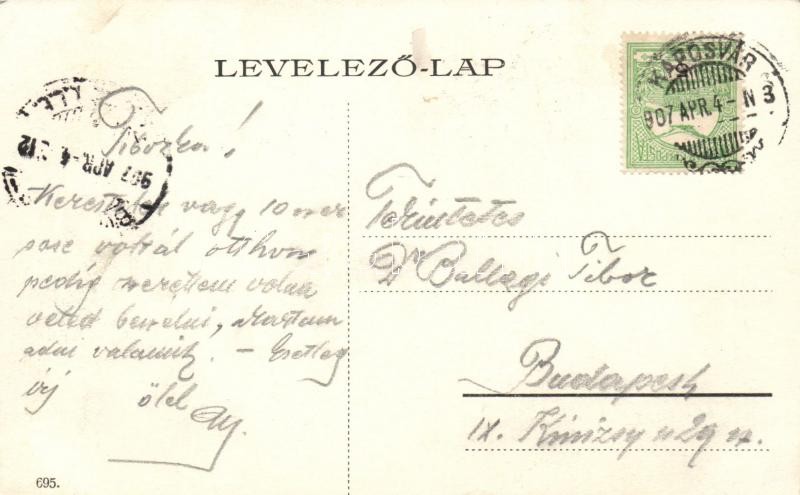 LEVELEZŐ-LAP
KAPOSVÁR
907 APR. 4 - N 3
907 APR. - 4.
Tiborka!
Kerestelek vagy 10 szer
sose voltál otthon
pedig szerettem volna
veled beszélni, akartam
adni valamit. – Esetleg
írj ölel
Tekintetes
Dr Ballagi Tibor
Budapest
IX. Kinizsy u 29 sz.
695.